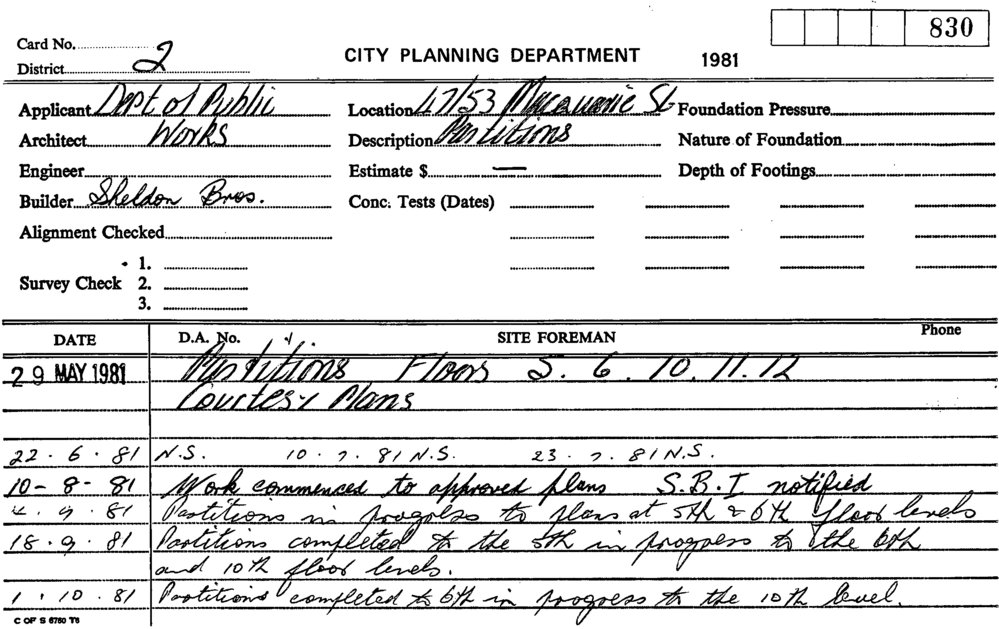 830
Card No.
District 2
CITY PLANNING DEPARTMENT 1981
Applicant Dept of Public Location 47/53 Macquarie St Foundation Pressure
Architect Works Description Partitions Nature of Foundation
Engineer Estimate $ — Depth of Footings
Builder Sheldon Bros. Conc. Tests (Dates)
Alignment Checked
1.
Survey Check 2.
3.
DATE D.A. No. SITE FOREMAN Phone
29 MAY 1981 Partitions Floors 5. 6. 10. 11. 12
Courtesy Plans
22.6.81 N.S. 10.7.81 N.S. 23.7.81 N.S.
10-8-81 Work commenced to approved plans S.B.I notified
4.9.81 Partitions in progress to plans at 5th & 6th floor levels
18.9.81 Partitions completed to the 5th in progress to the 6th
and 10th floor levels.
1.10.81 Partitions completed to 6th in progress to the 10th level.
C OF S 6760 T6